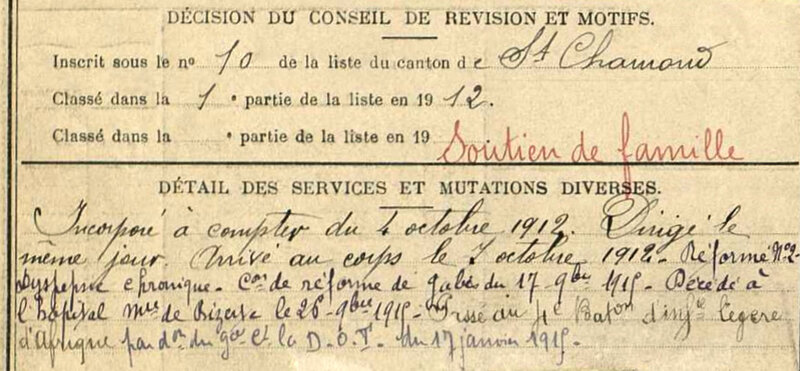 DÉCISION DU CONSEIL DE REVISION ET MOTIFS.
Inscrit sous le nº 10 de la liste du canton de St Chamond
Classé dans la 1 e partie de la liste en 1912.
Classé dans la e partie de la liste en 19
Soutien de famille
DÉTAIL DES SERVICES ET MUTATIONS DIVERSES.
Incorporé à compter du 4 octobre 1912. Dirigé le
même jour. Arrivé au corps le 7 octobre 1912 - Réformé Nº2 -
Dyspepsie chronique - Con de réforme de Gabès du 17 - 9bre 1915 - Décédé à
l'hôpital mre de Bizerte le 26 - 9bre 1915 - Passé au 4e Baton d'infie légère
d'Afrique par don du gal Ct la D.O.T. du 17 janvier 1915 -